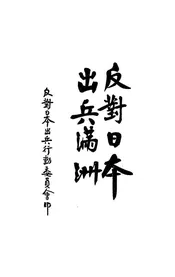 反對日本
出兵滿洲
反對日本出兵行動委員會印